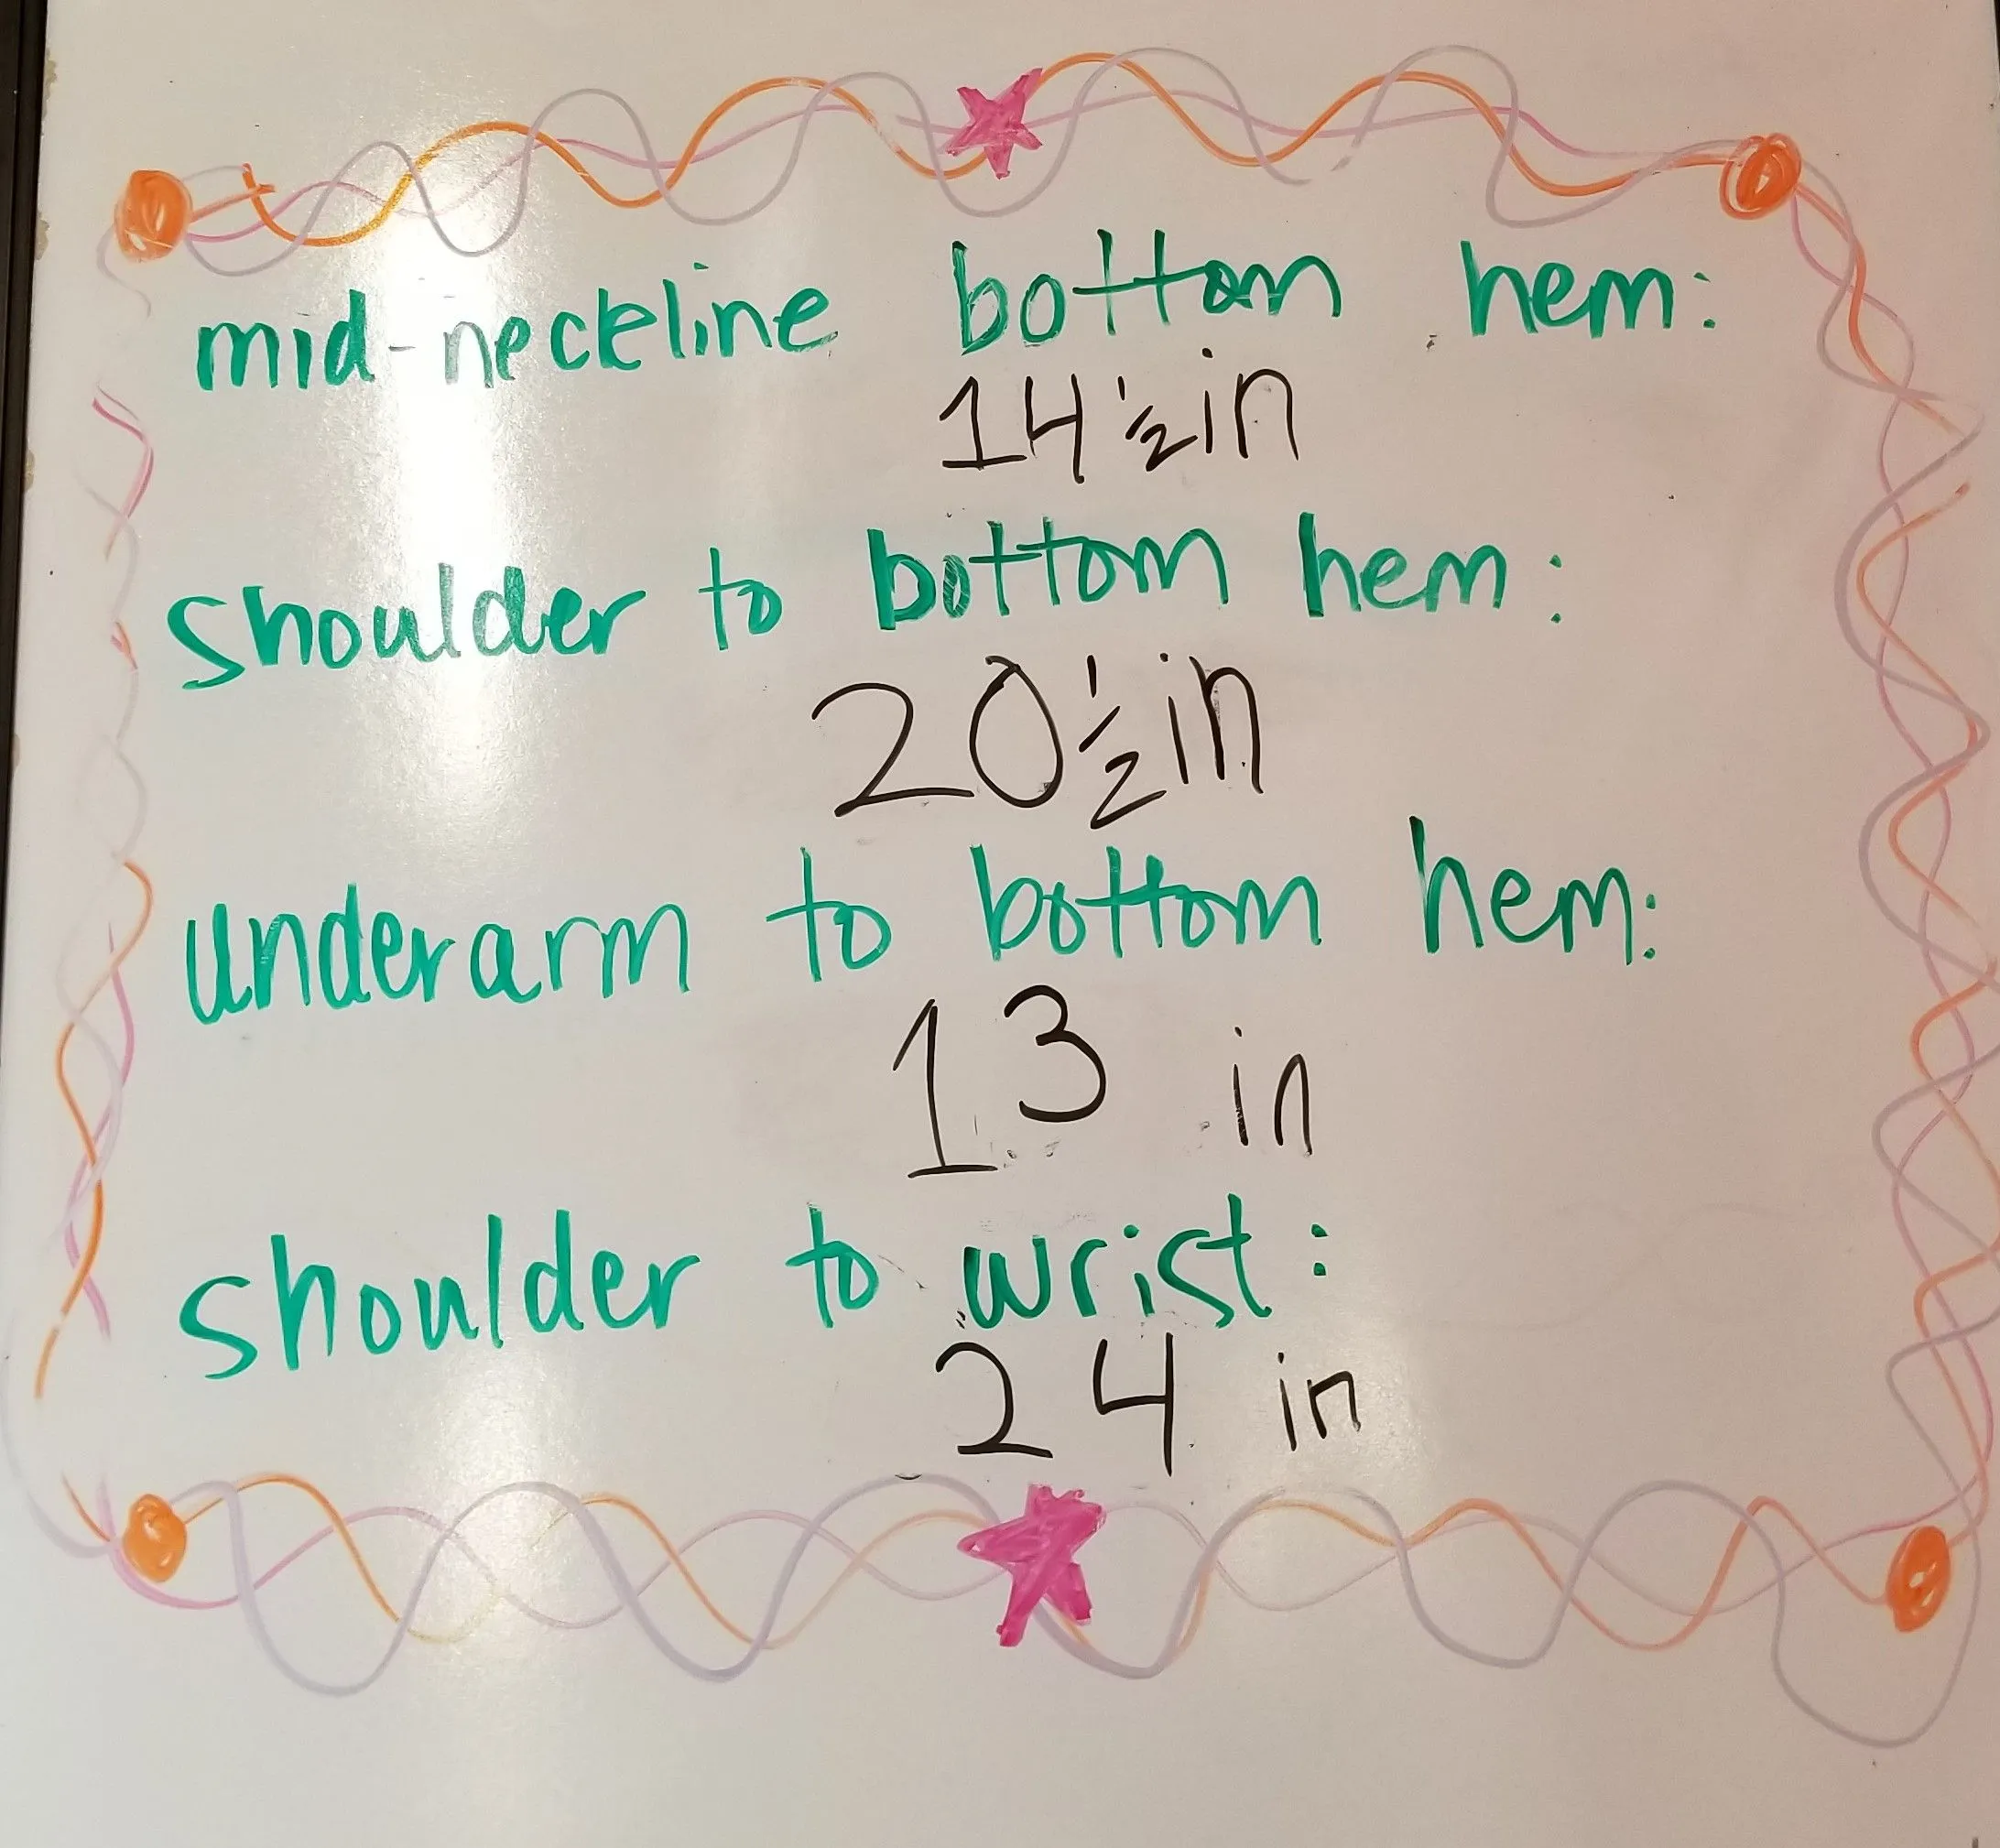 mid-neckline bottom hem:
14 1/2 in
shoulder to bottom hem:
20 1/2 in
underarm to bottom hem:
13 in
shoulder to wrist:
24 in